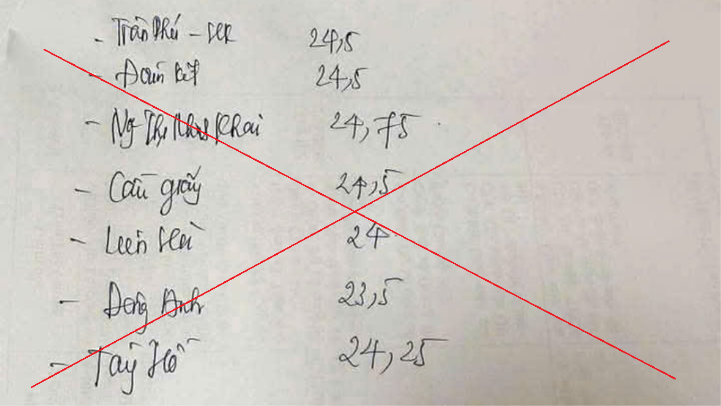 - Trần Phú - HK 24,5
- Đoàn Kết 24,5
- Ng Thị Minh Khai 24,75
- Cầu giấy 24,5
- 24
- Đông Anh 23,5
- Tây Hồ 24,25